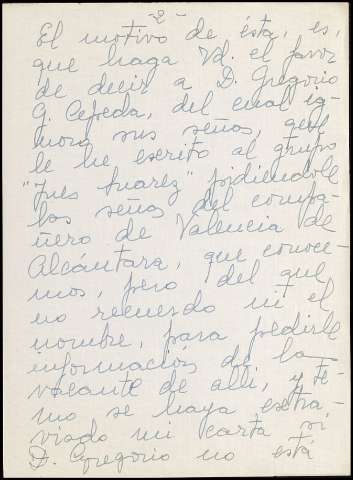 -2-
El motivo de ésta, es,
que haga Vd. el favor
de decir a D. Gregorio
G. Cepeda, del cual ig-
nora sus señas, que
le he escrito al grupo
"Inés Suarez" pidiendole
las señas del compa-
ñero de Valencia de
Alcántara, que conoce-
mos, pero del que
no recuerdo ni el
nombre, para pedirle
información de la
vacante de allí, y te-
mo se haya extra-
viado mi carta si
D. Gregorio no está